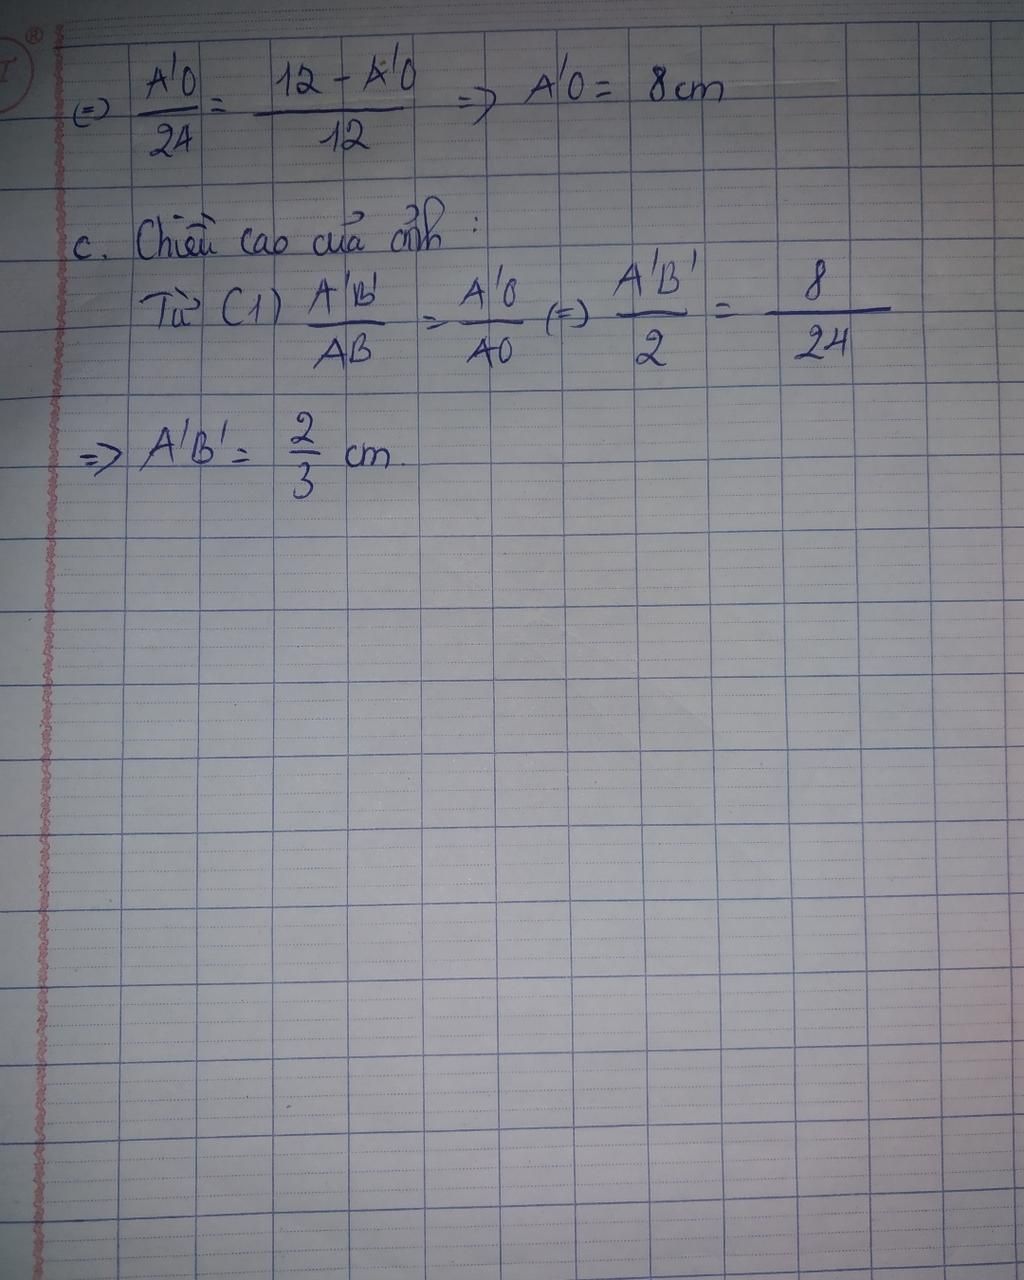 (=) A'O/24 = 12 - A'O/12 => A'O = 8cm
c. Chiều cao của ảnh :
Từ (1) A'B'/AB = A'O/AO (=) A'B'/2 = 8/24
=> A'B' = 2/3 cm.